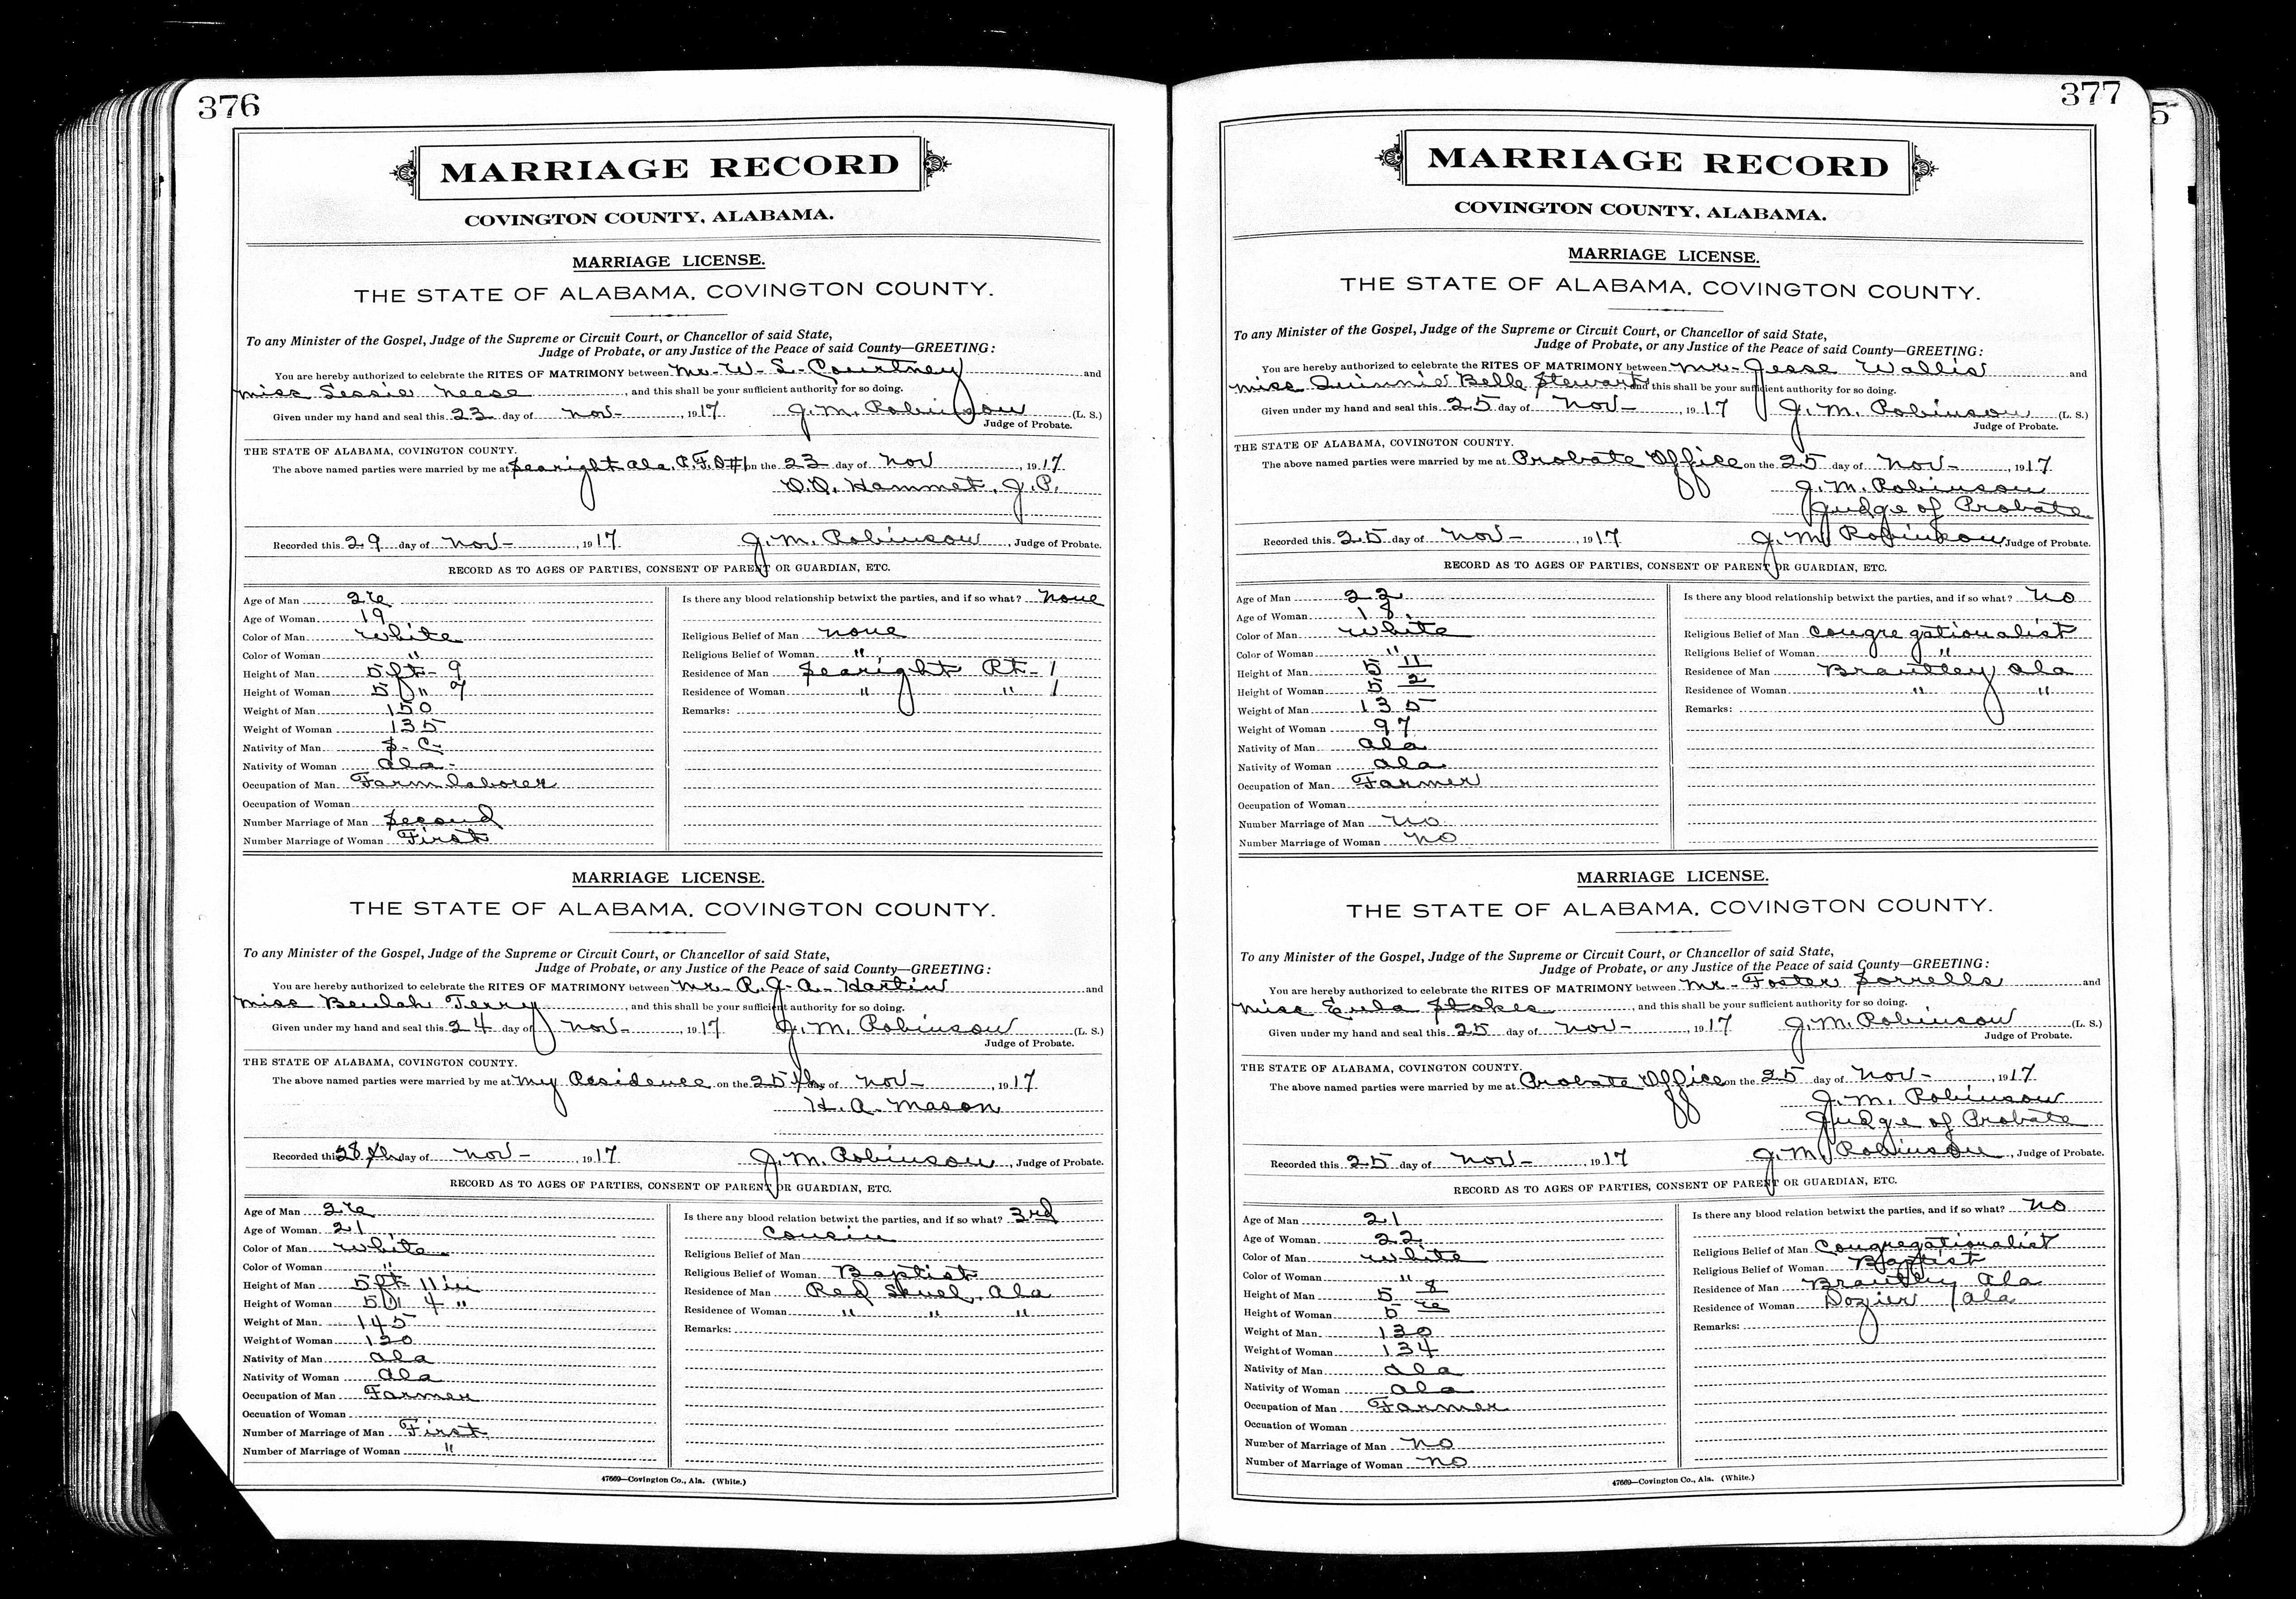 376
MARRIAGE RECORD
COVINGTON COUNTY, ALABAMA.
MARRIAGE LICENSE.
THE STATE OF ALABAMA, COVINGTON COUNTY.
To any Minister of the Gospel, Judge of the Supreme or Circuit Court, or Chancellor of said State,
Judge of Probate, or any Justice of the Peace of said County—GREETING:
You are hereby authorized to celebrate the RITES OF MATRIMONY between Mr. W. S. Courtney and
Miss Sessie Neese, and this shall be your sufficient authority for so doing.
Given under my hand and seal this 23 day of Nov- , 1917 J. M. Robinson (L. S.)
Judge of Probate.
THE STATE OF ALABAMA, COVINGTON COUNTY.
The above named parties were married by me at Searight Ala. R.F.D#1 on the 23 day of Nov , 1917
O.O. Hammet, J.P.
Recorded this 29 day of Nov- , 1917 J. M. Robinson, Judge of Probate.
RECORD AS TO AGES OF PARTIES, CONSENT OF PARENT OR GUARDIAN, ETC.
Age of Man 26
Age of Woman 19
Color of Man White
Color of Woman "
Height of Man 5 ft- 9
Height of Woman 5 " 7
Weight of Man 150
Weight of Woman 135
Nativity of Man S- C-
Nativity of Woman Ala-
Occupation of Man Farm laborer
Occupation of Woman
Number Marriage of Man Second
Number Marriage of Woman First
Is there any blood relationship betwixt the parties, and if so what? None
Religious Belief of Man None
Religious Belief of Woman "
Residence of Man Searight Rt-1
Residence of Woman " " 1
Remarks:
MARRIAGE LICENSE.
THE STATE OF ALABAMA, COVINGTON COUNTY.
To any Minister of the Gospel, Judge of the Supreme or Circuit Court, or Chancellor of said State,
Judge of Probate, or any Justice of the Peace of said County—GREETING:
You are hereby authorized to celebrate the RITES OF MATRIMONY between Mr- R. J- A- Hartin and
Miss Beulah Terry, and this shall be your sufficient authority for so doing.
Given under my hand and seal this 24 day of Nov- , 1917 J. M. Robinson (L. S.)
Judge of Probate.
THE STATE OF ALABAMA, COVINGTON COUNTY.
The above named parties were married by me at My Residence on the 25th day of Nov- , 1917
H. A- Mason
Recorded this 28th day of Nov- , 1917 J. M. Robinson, Judge of Probate.
RECORD AS TO AGES OF PARTIES, CONSENT OF PARENT OR GUARDIAN, ETC.
Age of Man 26
Age of Woman 21
Color of Man White
Color of Woman "
Height of Man 5 ft 11 in
Height of Woman 5 " 4 "
Weight of Man 145
Weight of Woman 120
Nativity of Man Ala
Nativity of Woman Ala
Occupation of Man Farmer
Occuation of Woman
Number of Marriage of Man First
Number of Marriage of Woman "
Is there any blood relation betwixt the parties, and if so what? 3rd
Cousin
Religious Belief of Man
Religious Belief of Woman Baptist
Residence of Man Red Ala
Residence of Woman " " "
Remarks:
47669—Covington Co., Ala. (White.)
377
5
MARRIAGE RECORD
COVINGTON COUNTY, ALABAMA.
MARRIAGE LICENSE.
THE STATE OF ALABAMA, COVINGTON COUNTY.
To any Minister of the Gospel, Judge of the Supreme or Circuit Court, or Chancellor of said State,
Judge of Probate, or any Justice of the Peace of said County—GREETING:
You are hereby authorized to celebrate the RITES OF MATRIMONY between Mr- Jesse Wallis and
Miss Belle Stewart, and this shall be your sufficient authority for so doing.
Given under my hand and seal this 25 day of Nov- , 1917 J. M. Robinson (L. S.)
Judge of Probate.
THE STATE OF ALABAMA, COVINGTON COUNTY.
The above named parties were married by me at Probate Office on the 25 day of Nov- , 1917
J. M. Robinson
Judge of Probate
Recorded this 25 day of Nov- , 1917 J. M. Robinson, Judge of Probate.
RECORD AS TO AGES OF PARTIES, CONSENT OF PARENT OR GUARDIAN, ETC.
Age of Man 22
Age of Woman 18.
Color of Man White
Color of Woman "
Height of Man 5 11
Height of Woman 5 2
Weight of Man 135
Weight of Woman 97
Nativity of Man Ala
Nativity of Woman Ala.
Occupation of Man Farmer
Occupation of Woman
Number Marriage of Man No
Number Marriage of Woman No
Is there any blood relationship betwixt the parties, and if so what? No
Religious Belief of Man Congregationalist
Religious Belief of Woman "
Residence of Man Brantley Ala
Residence of Woman " "
Remarks:
MARRIAGE LICENSE.
THE STATE OF ALABAMA, COVINGTON COUNTY.
To any Minister of the Gospel, Judge of the Supreme or Circuit Court, or Chancellor of said State,
Judge of Probate, or any Justice of the Peace of said County—GREETING:
You are hereby authorized to celebrate the RITES OF MATRIMONY between Mr- Foster Sorrells and
Miss Eula Stokes, and this shall be your sufficient authority for so doing.
Given under my hand and seal this 25 day of Nov- , 1917 J. M. Robinson (L. S.)
Judge of Probate.
THE STATE OF ALABAMA, COVINGTON COUNTY.
The above named parties were married by me at Probate Office on the 25 day of Nov- , 1917
J. M. Robinson
Judge of Probate
Recorded this 25 day of Nov- , 1917 J. M. Robinson, Judge of Probate.
RECORD AS TO AGES OF PARTIES, CONSENT OF PARENT OR GUARDIAN, ETC.
Age of Man 21
Age of Woman 22
Color of Man White
Color of Woman "
Height of Man 5 8
Height of Woman 5 6
Weight of Man 130
Weight of Woman 134
Nativity of Man Ala
Nativity of Woman Ala
Occupation of Man Farmer
Occuation of Woman
Number of Marriage of Man No
Number of Marriage of Woman No
Is there any blood relation betwixt the parties, and if so what? No
Religious Belief of Man Congregationalist
Religious Belief of Woman Baptist
Residence of Man Brantley Ala
Residence of Woman Dozier Ala
Remarks:
47669—Covington Co., Ala. (White.)